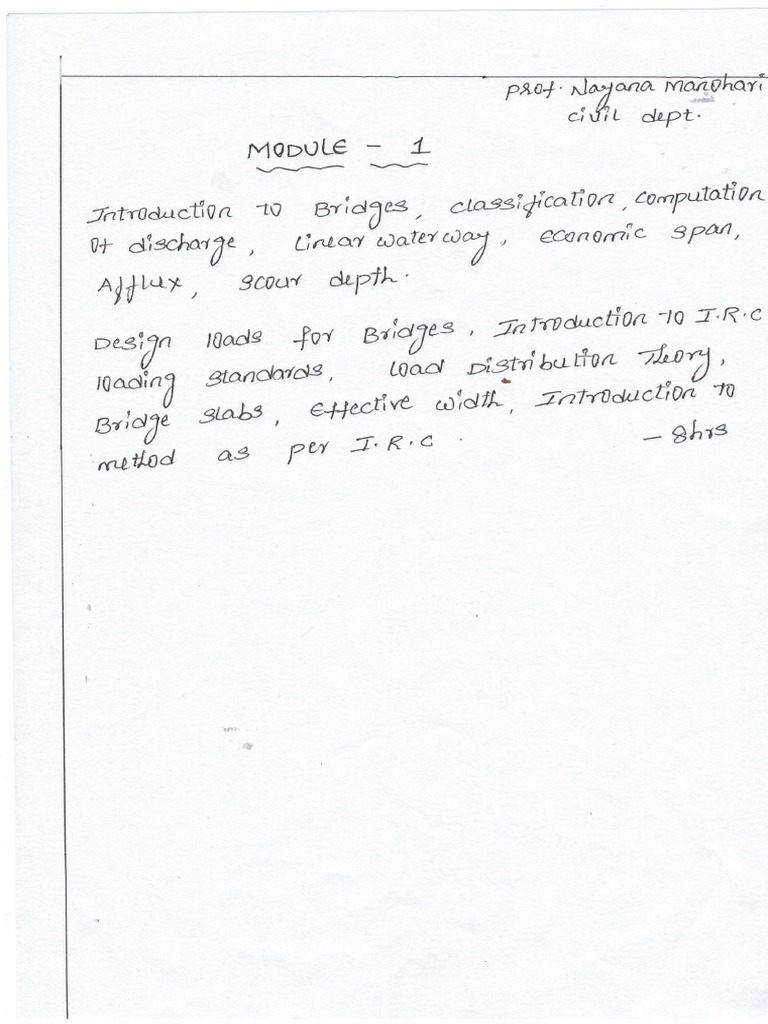 Prof. Nayana Manohari
civil dept.
MODULE - 1
Introduction to Bridges, classification, computation
of discharge, Linear waterway, economic span,
Afflux, scour depth.
Design loads for Bridges, Introduction to I.R.C
loading standards, Load Distribution Theory,
Bridge slabs, Effective width, Introduction to
method as per I.R.C.
- 8hrs